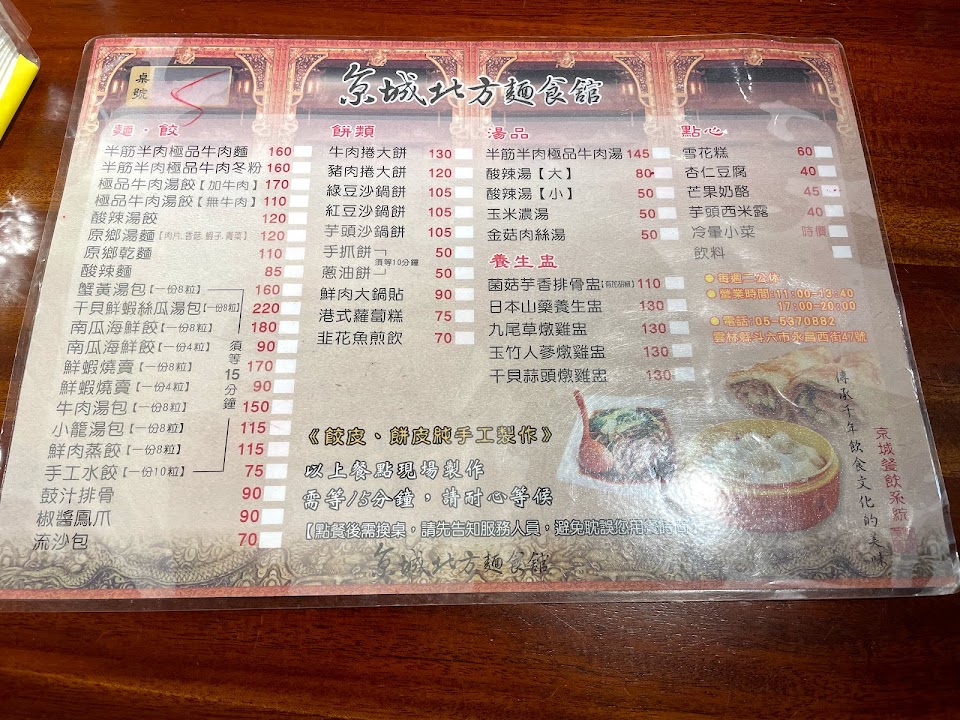 桌號 5
京城北方麵食館
麵．餃
半筋半肉極品牛肉麵 160
半筋半肉極品牛肉冬粉 160
極品牛肉湯餃【加牛肉】 170
極品牛肉湯餃【無牛肉】 110
酸辣湯餃 120
原鄉湯麵【肉片、香菇、蝦子、青菜】 120
原鄉乾麵 110
酸辣麵 85
蟹黃湯包【一份8粒】 160
干貝鮮蝦絲瓜湯包【一份8粒】 220
南瓜海鮮餃【一份8粒】 180
南瓜海鮮餃【一份4粒】 90
鮮蝦燒賣【一份8粒】 170
鮮蝦燒賣【一份4粒】 90
牛肉湯包【一份8粒】 150
小籠湯包【一份8粒】 115
鮮肉蒸餃【一份8粒】 115
手工水餃【一份10粒】 75
須等15分鐘
鼓汁排骨 90
椒醬鳳爪 90
流沙包 70
餅類
牛肉捲大餅 130
豬肉捲大餅 120
綠豆沙鍋餅 105
紅豆沙鍋餅 105
芋頭沙鍋餅 105
手抓餅 50
蔥油餅 50
須等10分鐘
鮮肉大鍋貼 90
港式蘿蔔糕 75
韭花魚煎飲 70
湯品
半筋半肉極品牛肉湯 145
酸辣湯【大】 80
酸辣湯【小】 50
玉米濃湯 50
金菇肉絲湯 50
養生盅
菌菇芋香排骨盅 110
日本山藥養生盅 130
九尾草燉雞盅 130
玉竹人蔘燉雞盅 130
干貝蒜頭燉雞盅 130
點心
雪花糕 60
杏仁豆腐 40
芒果奶酪 45
芋頭西米露 40
冷暈小菜 時價
飲料
每週二公休
營業時間:11:00-13:40
17:00-20:00
電話:05-5370882
雲林縣斗六市永昌西街47號
《餃皮、餅皮純手工製作》
以上餐點現場製作
需等15分鐘，請耐心等候
【點餐後需換桌，請先告知服務人員，避免耽誤您用餐
傳承千年飲食文化的美味
京城餐飲系統
京城北方麵食館